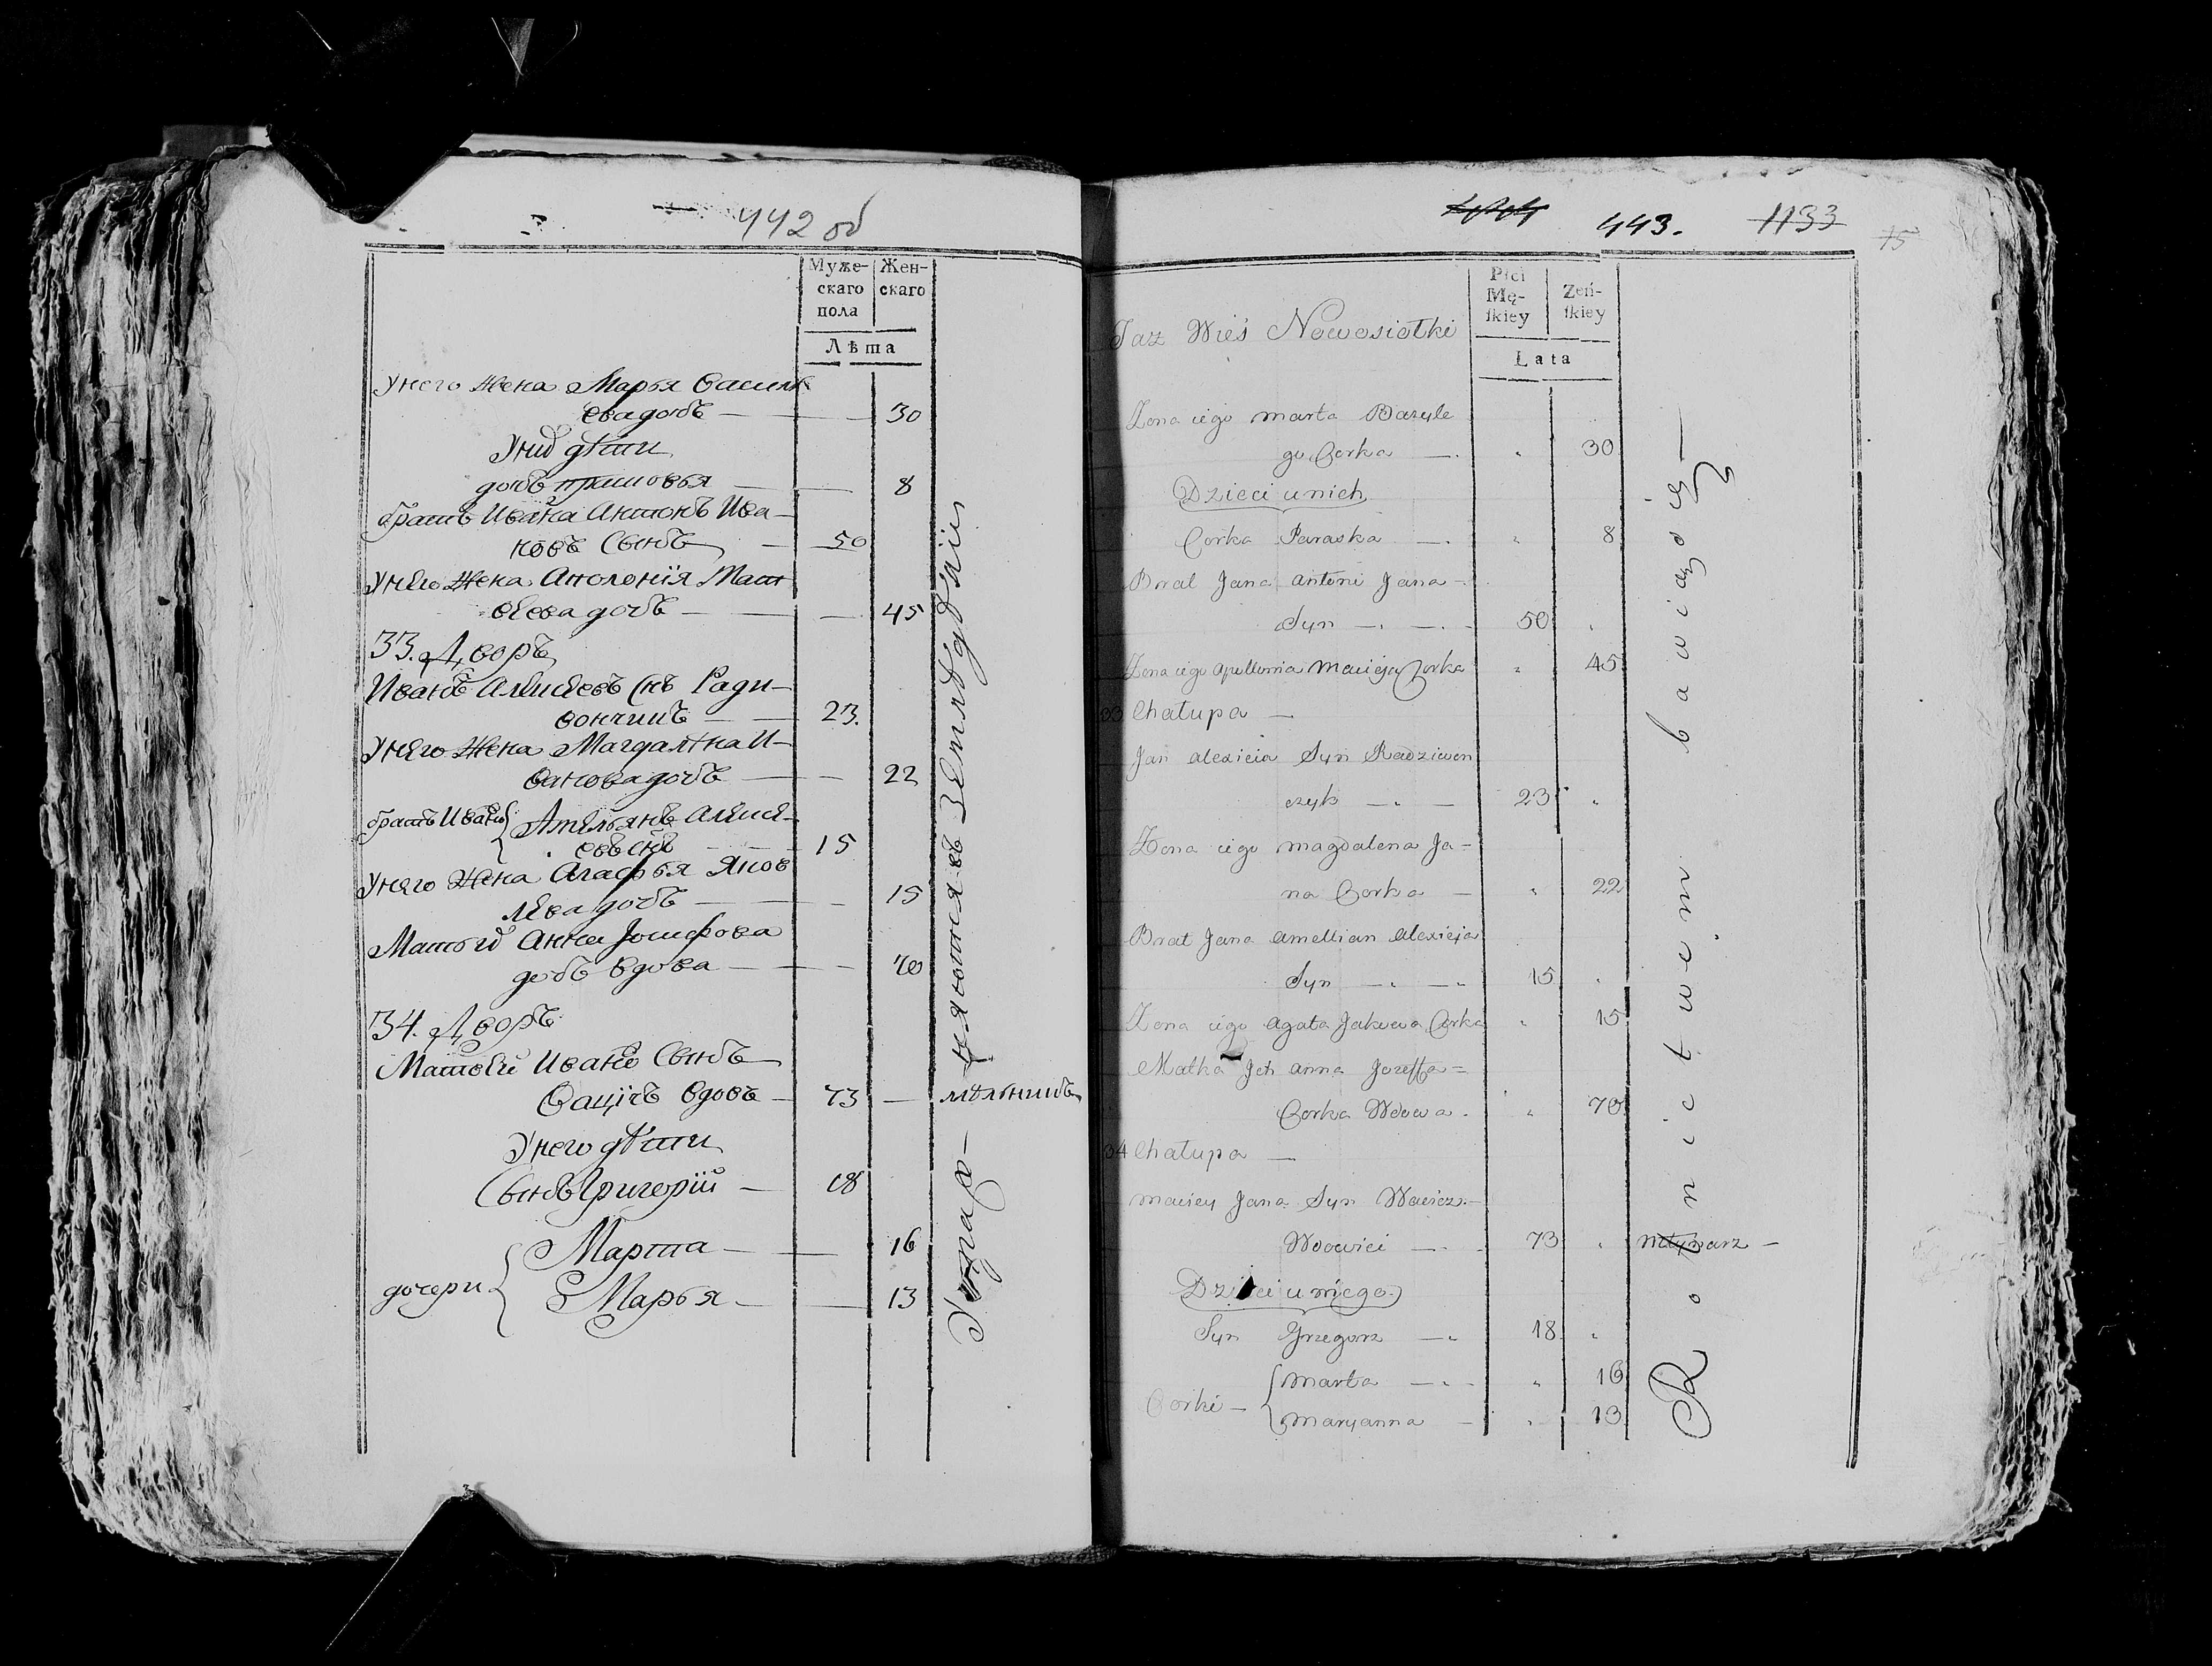 442 об
Муже-
скаго
пола
Жен-
скаго
Лѣта
У него Жена Марья Василь
ева дочь — — 30
У них дѣти
дочь прасковья — — 8
братъ Ивана Антонъ Ива-
новъ Сынъ — 50
У него Жена Аполонїя Мат
вѣева дочь — — 45
33. Дворъ
Иванъ Алѣксѣевъ снъ Ради-
вончикъ — — 23.
У него Жена Магдалѣна И-
ванова дочь — — 22
братъ Ивана { Амѣльянъ Алѣксѣ-
евъ снъ — — 15
У него Жена Агафья Яков
лѣва дочь — — 15
Мать их Анна Јосифова
дочь вдова — — 70
34. Дворъ
Матвѣй Ивано Сынъ
Вацїчъ вдовъ — 73 — мѣльникъ
У него дѣти
Сынъ Григорїй — 18
дочери { Марта — — 16
Марья — — 13
Упражняются въ Земледѣлїи
443. 1133
75
Płci
Mę-
ſkiey
Zeń-
ſkiey
Lata
Taz Wieś Nowosiołki
Zona iego Marta Bazyle
go Corka — 30
Dzieci u nich
Corka Paraska — 8
Brat Jana Antoni Jana =
Syn — — 50
Zona iego Apollonia Macieja Corka 45
33 Chałupa —
Jan Alexieia Syn Radziwon
czyk — — 23
Zona iego Magdalena Ja=
na Corka — 22
Brat Jana Amellian Alexieja
Syn — — 15
Zona iego Agata Jakowa Corka 15
Matka Jch Anna Jozeffa =
Corka Wdowa. 70
34 Chałupa —
Maciey Jana Syn Wacicz. —
Wdowiec — 73 młynarz —
Dzieci u niego
Syn Grzegorz — 18
Corki — { Marta — 16
Maryanna — 13
Rolnictwem bawią się —